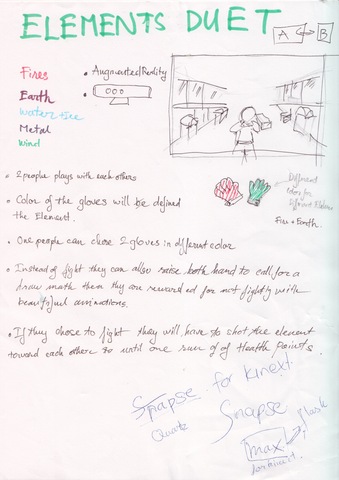 ELEMENTS DUET
A B
Fires
• Augmented Reality
Earth
Water + Ice
Metal
Wind
• 2 people plays with each others
• Color of the gloves will be defined
the Element.
Different
Color for
Different Elements
Fire + Earth
• One people can chose 2 gloves in different color
• Instead of fight they can also raise both hand to call for a
draw math then they are rewarded for not fightly with
beautyful animations.
• If they chose to fight they will have to shot the element
toward each other to until one run of of Health points.
Synapse for Kinext
Quartz
Sinapse
flash
max